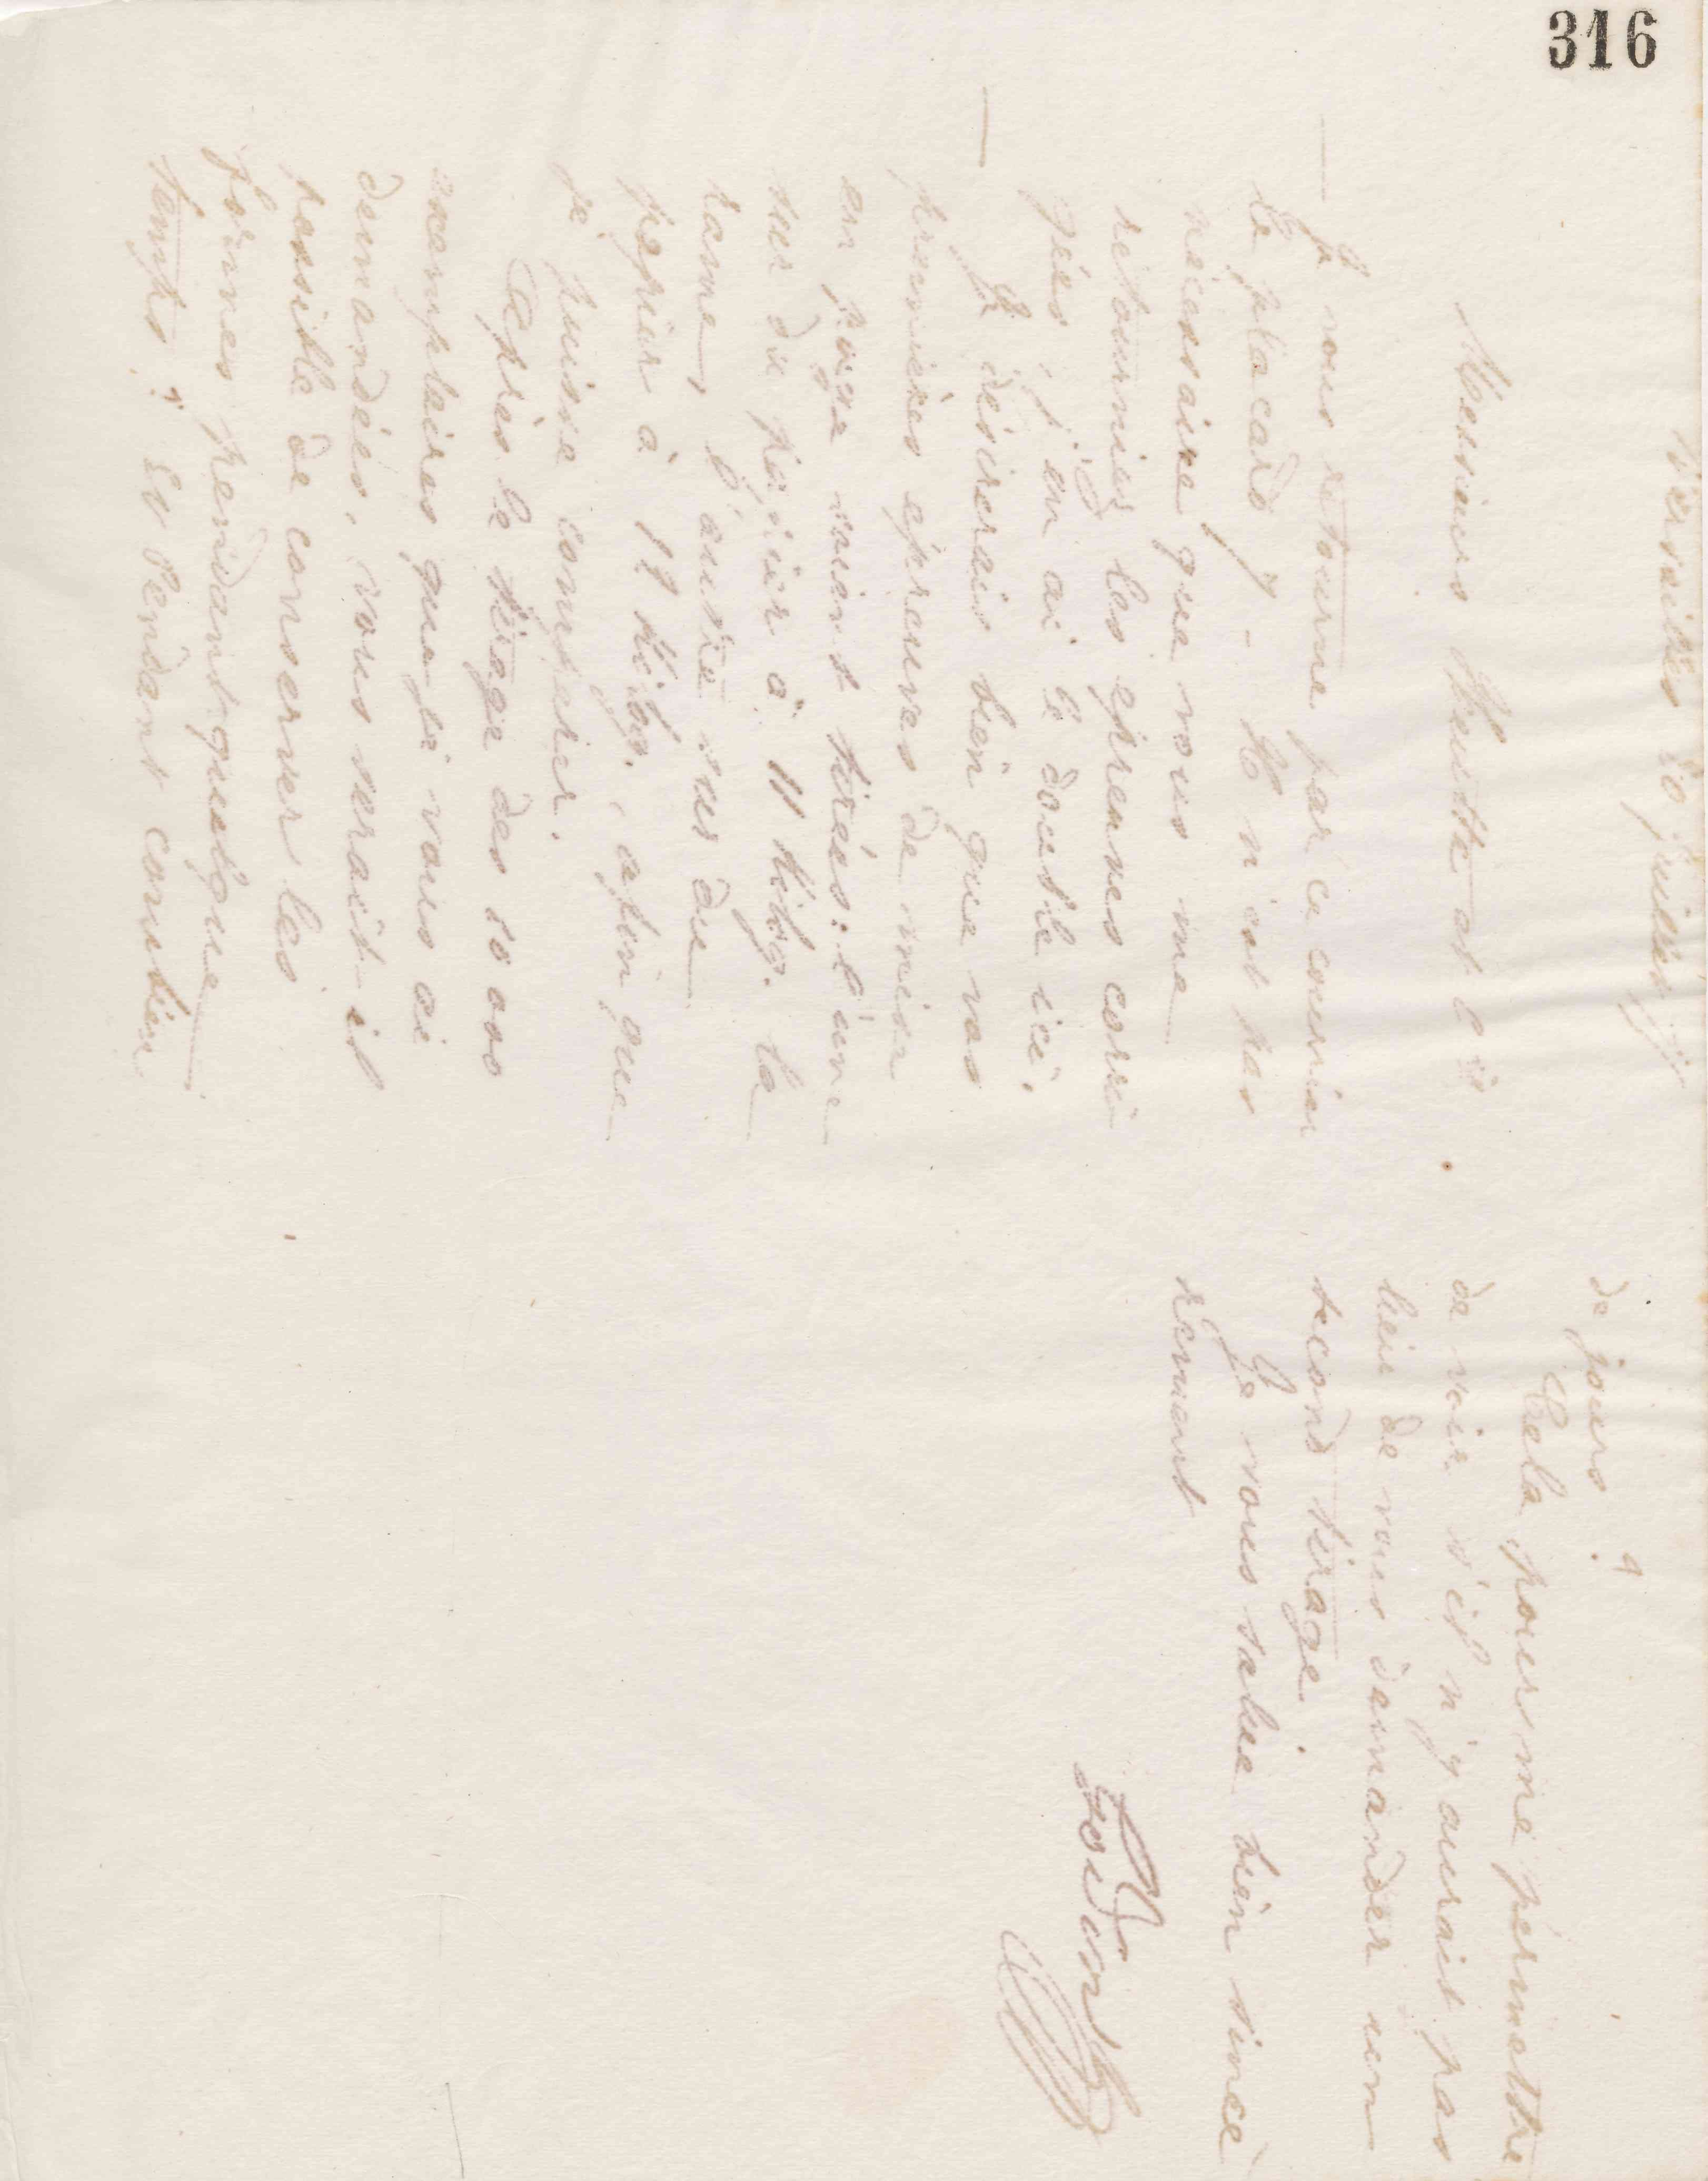 316
Versailles 20 juillet
Messieurs et Cie
Je vous retourne par ce courrier
le placard 7 - Il n'est pas
nécessaire que vous me
retourniez les épreuves corri
gées, j'en ai le double ici.
— Je désirerais bien que vos
premières épreuves de mise
en page soient tirées: l'une
sur du papier à 11 kilog. la
rame, l'autre sur du
papier à 12 kilog., afin que
je puisse comparer.
Après le tirage des 10 000
exemplaires que je vous ai
demandées, vous serait-il
possible de conserver les
formes pendant quelque
temps? Et pendant combien
de jours?
Cela pour me permettre
de voir s'il n'y aurait pas
lieu de vous demander un
second tirage.
Je vous salue bien sincè
rement